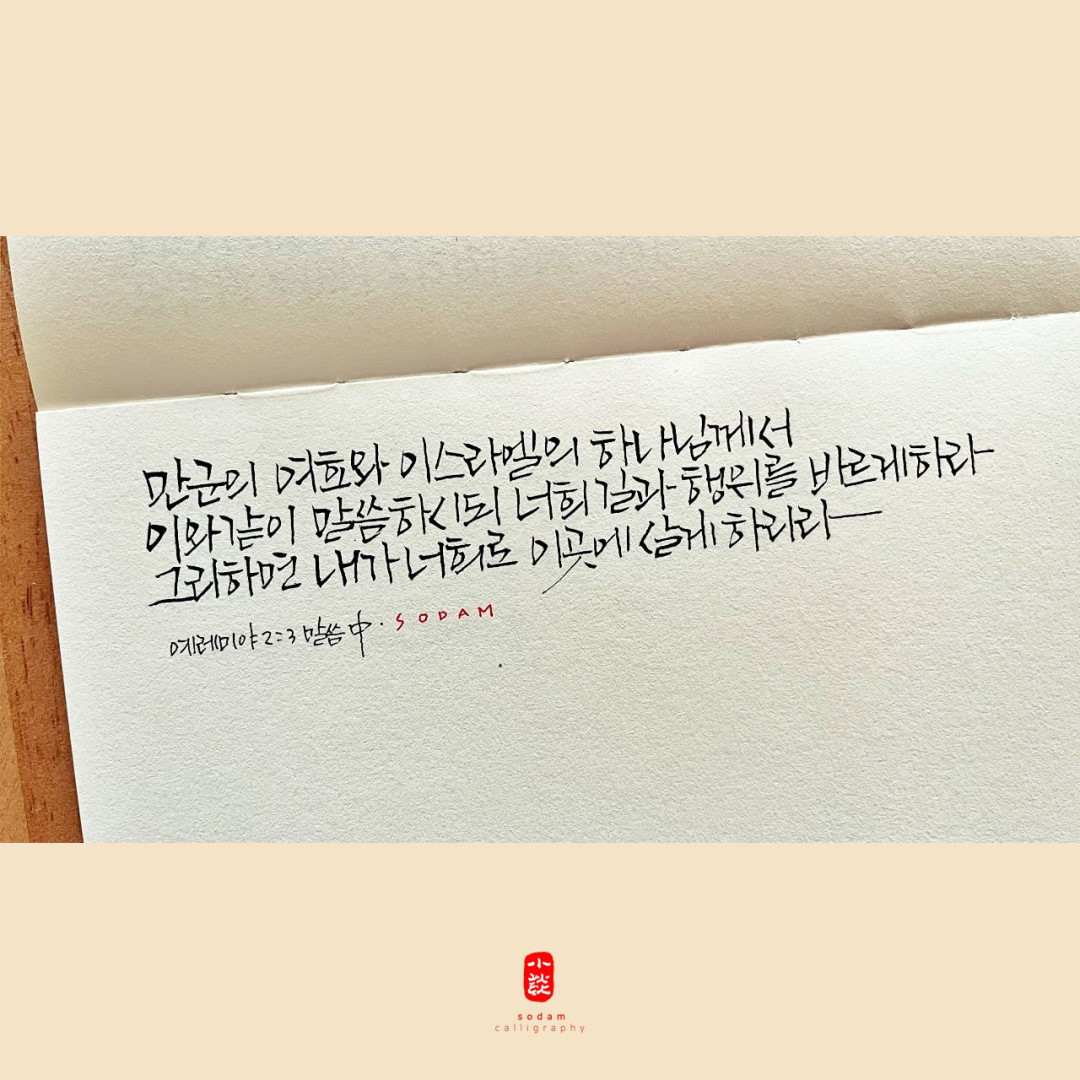 만군의 여호와 이스라엘의 하나님께서
이와같이 말씀하시되 너희 길과 행위를 바르게하라
그리하면 내가 너희로 이곳에 살게 하리라
예레미야 2:3 말씀 中 · SODAM
小談
sodam
calligraphy